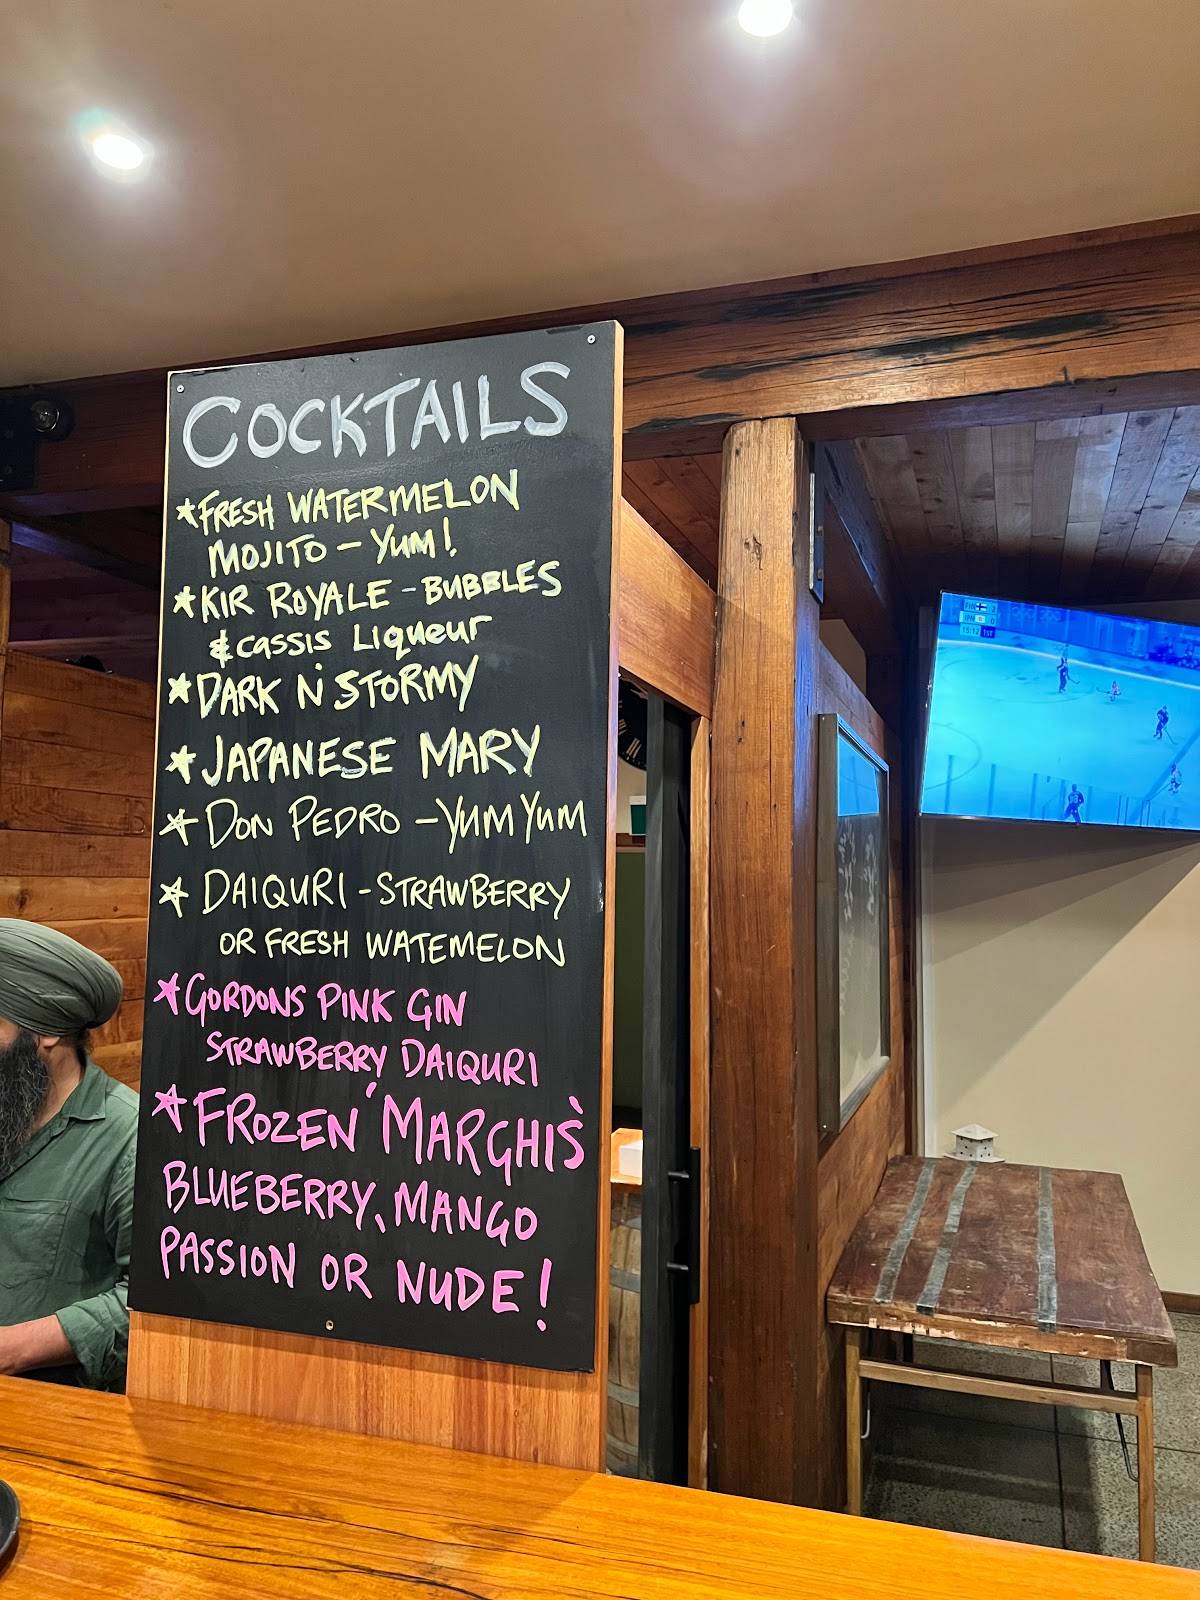 COCKTAILS
*FRESH WATERMELON
MOJITO - YUM!
*KIR ROYALE - BUBBLES
& CASSIS LIQUEUR
*DARK N STORMY
*JAPANESE MARY
*DON PEDRO - YUM YUM
*DAIQURI - STRAWBERRY
OR FRESH WATEMELON
*GORDONS PINK GIN
STRAWBERRY DAIQURI
*FROZEN 'MARGHIS'
BLUEBERRY, MANGO
PASSION OR NUDE!
FIN 2
JPN 0
15:12 1ST